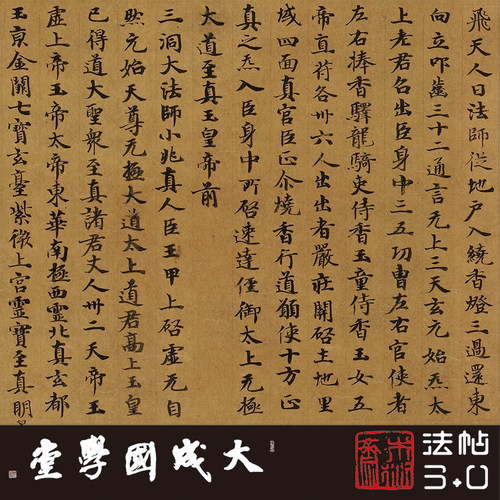 飛天人曰法師從地戶入繞香燈三過還東
向立叩齒三十二通言无上三天玄元始炁太
上老君召出臣身中三五功曹左右官使者
左右捧香驛龍騎吏侍香玉童侍香玉女五
帝直符各卅六人出出者嚴莊關啓土地里
域四面真官臣正尒燒香行道願使十方正
真之炁入臣身中所啓速達俓御太上无極
大道至真玉皇帝前
三洞大法師小兆真人臣王甲上啓虛无自
然元始天尊无極大道太上道君高上玉皇
已得道大聖衆至真諸君丈人卅二天帝玉
虛上帝玉帝太帝東華南極西靈北真玄都
玉京金闕七寳玄臺紫微上宮靈寳至真明
大成國學堂
法帖
3.0